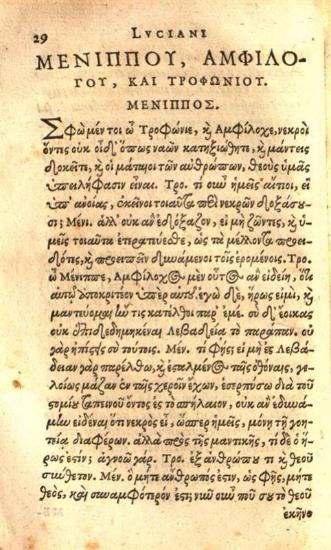 29 LVCIANI
ΜΕΝΙΠΠΟΥ, ΑΜΦΙΛΟ-
ΓΟΥ, ΚΑΙ ΤΡΟΦΩΝΙΟΥ.
ΜΕΝΙΠΠΟΣ.
Σφὼ μέν τοι ὦ Τροφώνιε, κὶ Ἀμφίλοχε, νεκροὶ
ὄντες οὐκ οἶδ' ὅπως ναῶν κατηξιώθητε, κὶ μάντεις
δοκεῖτε, κὶ οἱ μάταιοι τῶν ἀνθρώπων, θεοὺς ὑμᾶς
ὑπειλήφασιν εἶναι. Τρο. τί οὖν ἡμεῖς αἴτιοι, εἰ
ὑπ' ἀνοίας, ἐκεῖνοι τοιαῦτα περὶ νεκρῶν δοξάσου-
σι; Μένι. ἀλλ' οὐκ ἂν ἐδόξαζον, εἰ μὴ ζῶντες, κὶ ὑ-
μεῖς τοιαῦτα ἐτερατεύεσθε, ὡς τὰ μέλλοντα προει-
δότες, κὶ προειπεῖν δυνάμενοι τοῖς ἐρομένοις. Τρο.
ὦ Μένιππε, Ἀμφίλοχος μὲν οὗτος ἂν εἰδείη, ὅτι
αὐτῷ ἀποκριτέον ὑπὲρ αὑτοῦ. ἐγὼ δὲ, ἥρως εἰμὶ, κὶ
μαντεύομαι ἤν τις κατέλθοι παρ' ἐμέ. σὺ δ' ἔοικας
οὐκ ἐπιδεδημηκέναι Λεβαδείᾳ τὸ παράπαν. οὐ
γὰρ ἠπίστεις σὺ τούτοις. Μεν. τί φῄς; εἰ μὴ ἐς Λεβά-
δειαν γὰρ παρέλθω, κὶ ἐσταλμένος ταῖς ὀθόναις, γε-
λοίως μᾶζαν ἐν ταῖν χεροῖν ἔχων, ἐσερπύσω διὰ τοῦ
στομίου ταπεινοῦ ὄντος ἐς τὸ σπήλαιον, οὐκ ἂν ἐδυνά-
μην εἰδέναι ὅτι νεκρὸς εἶ, ὥσπερ ἡμεῖς, μόνῃ τῇ γοη-
τείᾳ διαφέρων. ἀλλὰ πρὸς τῆς μαντικῆς, τί δὲ ὁ ἥ-
ρως ἐστίν; ἀγνοῶ γάρ. Τρο. ἐξ ἀνθρώπου τι κὶ θεοῦ
σύνθετον. Μεν. ὃ μήτε ἄνθρωπός ἐστιν, ὡς φῂς, μήτε
θεὸς, καὶ συναμφότερόν ἐστι; νῦν οὖν ποῦ σου τὸ θεοῦ
ἐκῆνο